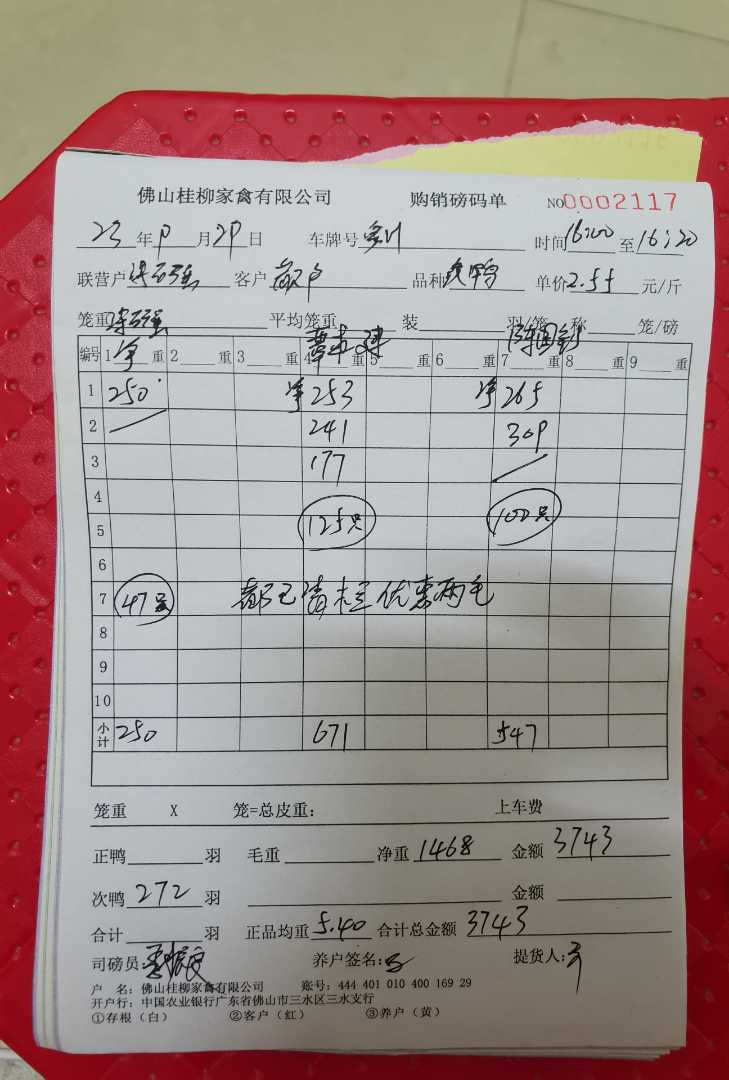 佛山桂柳家禽有限公司 购销磅码单 NO0002117
23年9月29日 车牌号 时间16:00至16:20
联营户 客户 品种 鸭 单价2.55元/斤
笼重 平均笼重 装 羽/笼 称 笼/磅
编号 1净重 2重 3重 4重 5重 6重 7重 8重 9重
1 250 净253 净265
2 241 309
3 177
4
5 125只 100只
6
7 47只 都已清栏优惠两毛
8
9
10
小计 250 671 547
笼重 X 笼=总皮重: 上车费
正鸭 羽 毛重 净重1468 金额3743
次鸭272羽 金额
合计 羽 正品均重5.40 合计总金额3743
司磅员: 养户签名: 提货人:
户 名: 佛山桂柳家禽有限公司 账号: 444 401 010 400 169 29
开户行: 中国农业银行广东省佛山市三水区三水支行
①存根(白) ②客户(红) ③养户(黄)